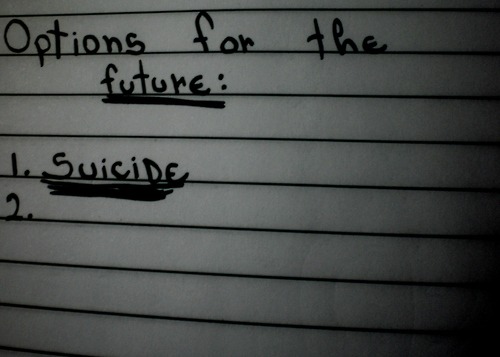 Options for the
future:
1. Suicide
2.